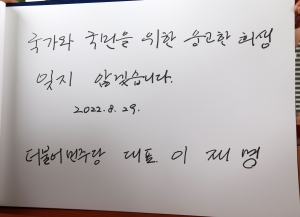 국가와 국민을 위한 숭고한 희생
잊지 않겠습니다.
2022. 8. 29.
더불어민주당 대표 이재명